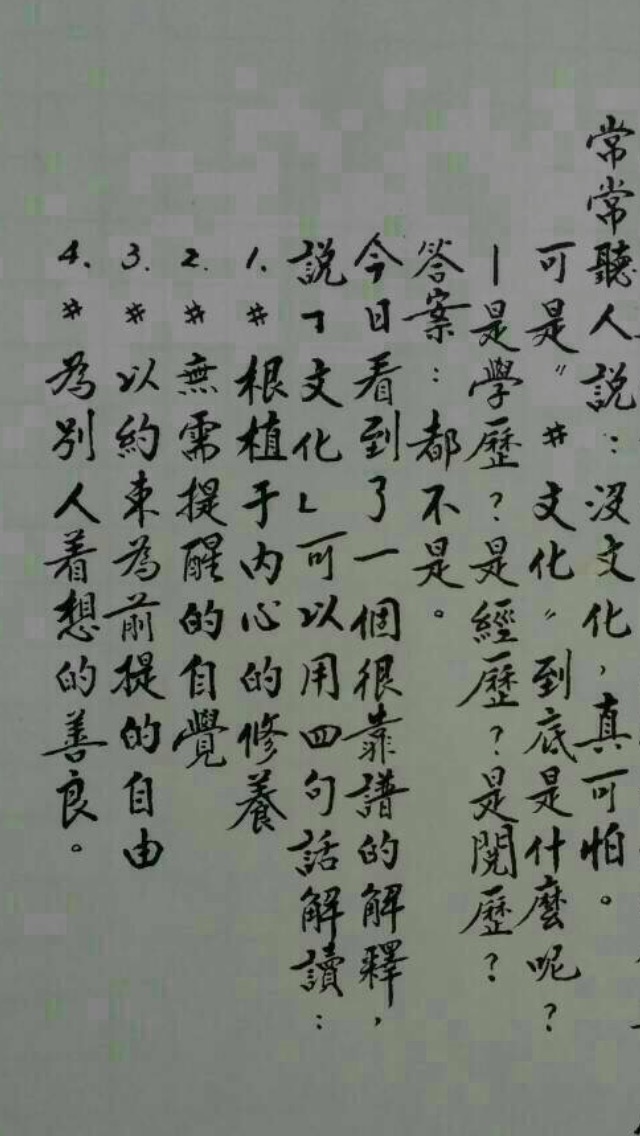 常常聽人説：沒文化，真可怕。
可是〃#文化〃到底是什麼呢？
｜是學歷？是經歷？是閱歷？
答案：都不是。
今日看到了一個很靠譜的解釋，
説﹁文化﹂可以用四句話解讀：
1.#根植于內心的修養
2.#無需提醒的自覺
3.#以約束為前提的自由
4.#為別人着想的善良。